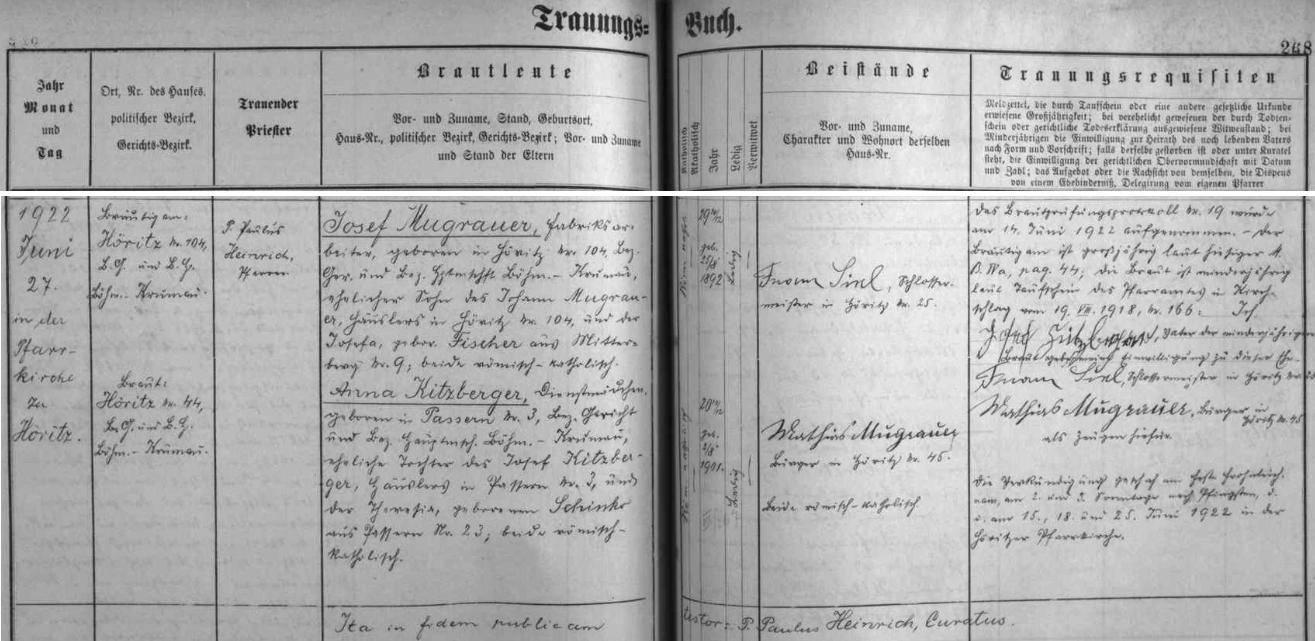 Trauungs=Buch.
268
Jahr
Monat
und
Tag
Ort, Nr. des Hauses,
politischer Bezirk,
Gerichts-Bezirk.
Trauender
Priester
Brautleute
Vor- und Zuname, Stand, Geburtsort,
Haus-Nr., politischer Bezirk, Gerichts-Bezirk; Vor- und Zuname
und Stand der Eltern
Katholisch
Akatholisch
Jahr
Ledig
Verwitwet
Beistände
Vor- und Zuname,
Charakter und Wohnort derselben
Haus-Nr.
Trauungsrequisiten
Meldzettel, die durch Taufschein oder eine andere gesetzliche Urkunde
erwiesene Großjährigkeit; bei verehelicht gewesenen der durch Todten-
schein oder gerichtliche Todeserklärung ausgewiesene Witwenstand; bei
Minderjährigen die Einwilligung zur Heirath des noch lebenden Vaters
nach Form und Vorschrift; falls derselbe gestorben ist oder unter Kuratel
steht, die Einwilligung der gerichtlichen Obervormundschaft mit Datum
und Zahl; das Aufgebot oder die Nachsicht von demselben, die Dispens
von einem Ehehinderniß, Delegirung vom eigenen Pfarrer
1922
Juni
27.
in der
Pfarr-
kirche
zu
Höritz.
Bräutigam:
Höritz Nr. 104,
B. G. und B. H.
Böhm. Krumau.
Braut:
Höritz Nr. 44,
B. G. und B. H.
Böhm. - Krumau.
P. Paulus
Heinrich,
Pfarrer
Josef Mugrauer, Fabriksar-
beiter, geboren in Höritz Nr. 104, Bez.
Ger. und Bez. Hptmschft Böhm. - Krumau,
ehelicher Sohn des Johann Mugrau-
er, Häuslers in Höritz Nr. 104, und der
Josefa, gebor. Fischer aus Mitter-
berg Nr. 9; beide römisch-katholisch.
Anna Kitzberger, Dienstmädchen,
geboren in Passern Nr. 3, Bez. Gericht
und Bez. Hauptmsch. Böhm. - Krumau,
eheliche Tochter des Josef Kitzber-
ger, Häuslers in Passern Nr. 3, und
der Theresia, geborenen Schinko
aus Passern Nr. 23; beide römisch-
katholisch.
geb.
1892
ledig
geb.
1901.
ledig
Schlosser-
meister in Höritz Nr. 25.
Mathias Mugrauer
Bürger in Höritz Nr. 45.
Beide römisch-katholisch.
Das Brautprüfungsprotokoll Nr. 19 wurde
am 14. Juni 1922 aufgenommen. - Der
Bräutigam ist großjährig laut hiesiger M.
pag. 44; die Braut ist minderjährig
laut Taufschein des Pfarramtes in Kirch-
schlag vom 19. VII. 1918, Nr. 166: Ich
Josef Kitzberger, Vater der minderjährigen
Braut Einwilligung zu dieser Ehe.
Schlossermeister in Höritz Nr. 25
Mathias Mugrauer, Bürger in
Höritz Nr. 45
als Zeugen hiefür.
Die Verkündigung geschah am Feste Frohnleich-
nam, am 2. und 3. Sonntage nach Pfingsten, d.
i. am 15., 18. und 25. Juni 1922 in der
Höritzer Pfarrkirche.
Ita in fidem publicam testor: P. Paulus Heinrich, Curatus.